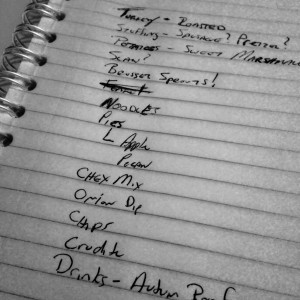 Turkey - Roasted
Stuffing - Sausage? Pretzel?
Potatoes - Sweet Marshmallow
Slaw?
Brussel Sprouts!
Noodles
Pies
Apple
Pecan
Chex Mix
Onion Dip
Chips
Crudite
Drinks - Autum